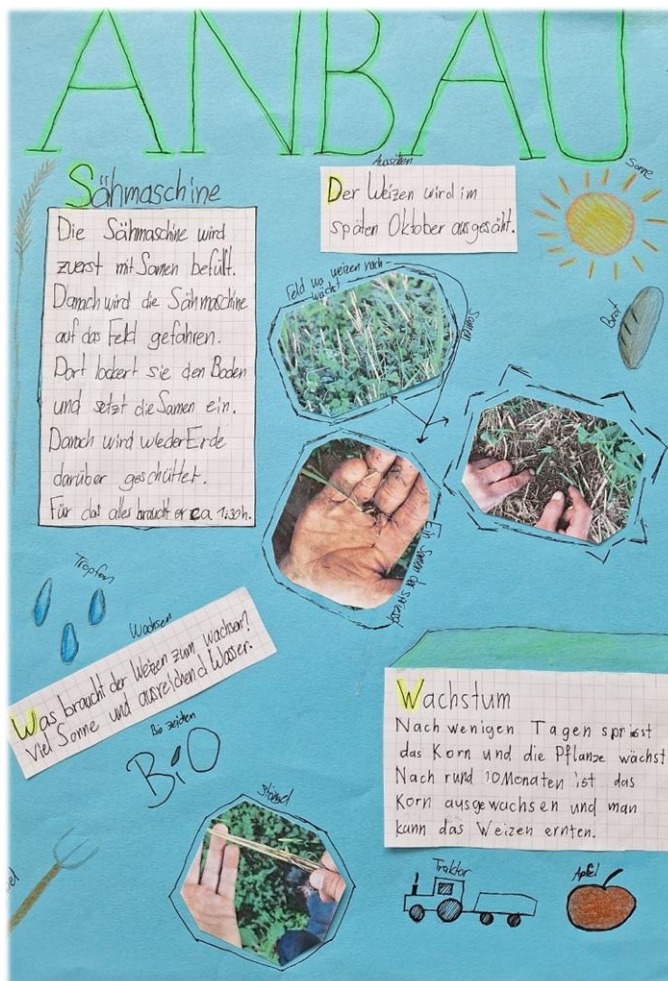 ANBAU
Sähmaschine
Die Sähmaschine wird
zuerst mit Samen befült.
Danach wird die Sähmaschine
auf das Feld gefahren.
Dort lockert sie den Boden
und setzt die Samen ein.
Danach wird wieder Erde
darüber geschüttet.
Für das alles braucht er ca. 1:30h.
Aussähen
Der Weizen wird im
späten Oktober ausgesäht.
Sonne
Brot
Feld wo weizen nach-
wächst
Samen
Ein Samen der spriesst
Tropfen
Wachsen
Was braucht der Weizen zum wachsen?
Viel Sonne und ausreichend Wasser.
Bio zeichen
BiO
Wachstum
Nach wenigen Tagen spriesst
das Korn und die Pflanze wächst
Nach rund 10 Monaten ist das
Korn ausgewachsen und man
kann das Weizen ernten.
Stängel
Traktor
Apfel